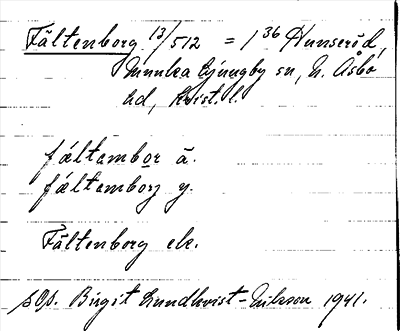 Fältenborg 13/512 = 1 36 Hunseröd,
Munka Ljungby sn, N. Åsbo
hd, Krist. l.
fæltambor ä.
fæltamborj y.
Fältenborg ek.
sOs. Birgit Lundkvist-Nilsson 1941.